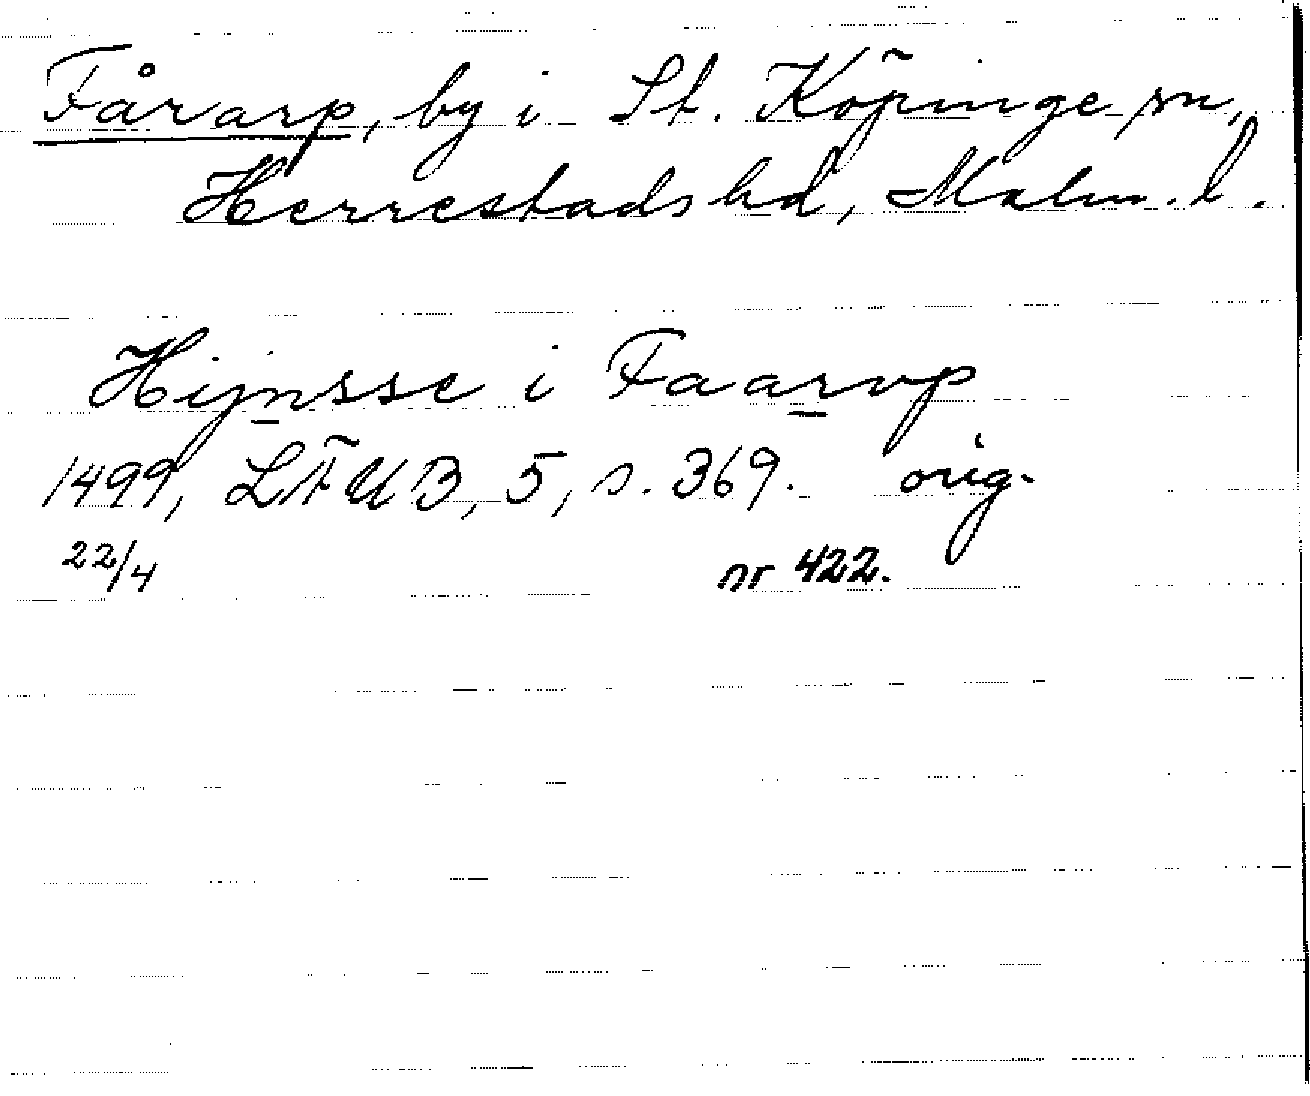 Fårarp, by i St. Köpinge sn,
Herrestads hd, Malm. l.
Hijnsse i Faarvp
1499, LÄUB, 5, s. 369. orig.
22/4 nr 422.